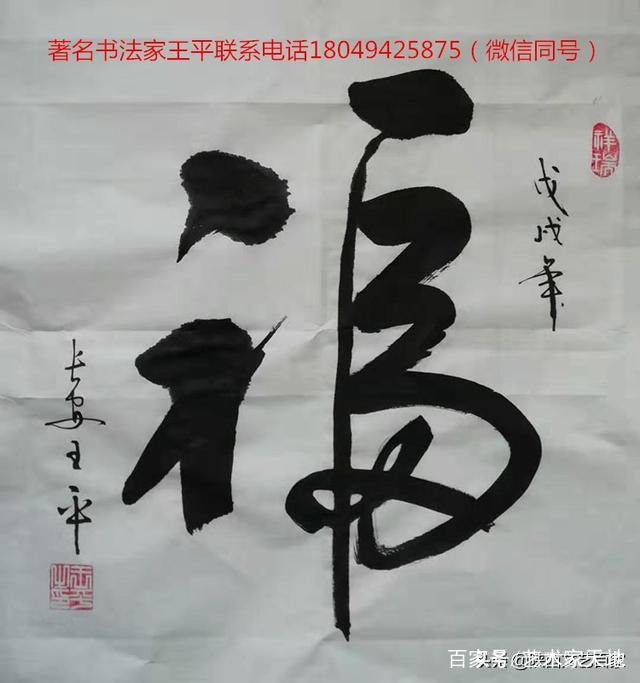 著名书法家王平联系电话18049425875（微信同号）
祥瑞
戊戌年
福
长安王平
百家号/艺术家天地